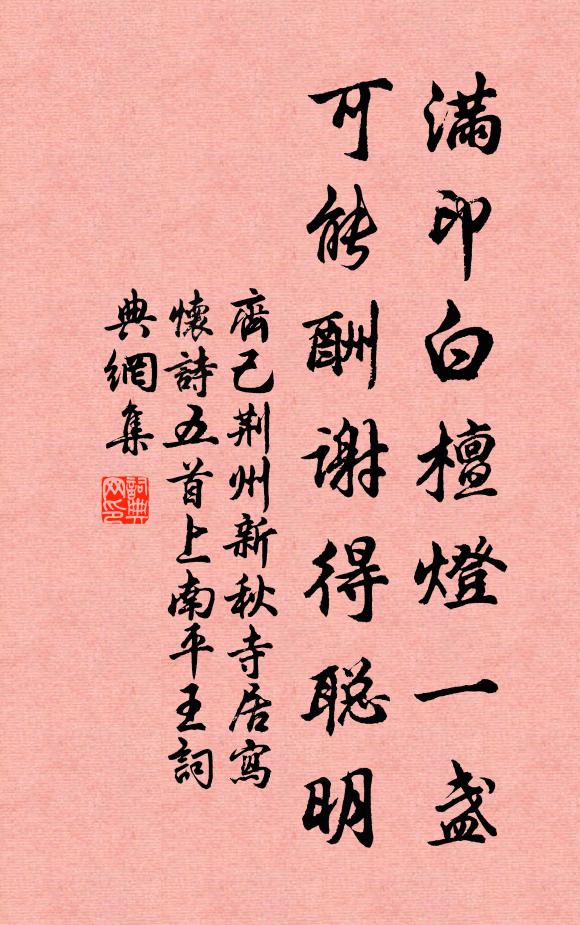 滿印白檀燈一盞
可能酬谢得聪明
齊己荆州新秋寺居寫
懷詩五首上南平王詞
典網集
詞典
网印